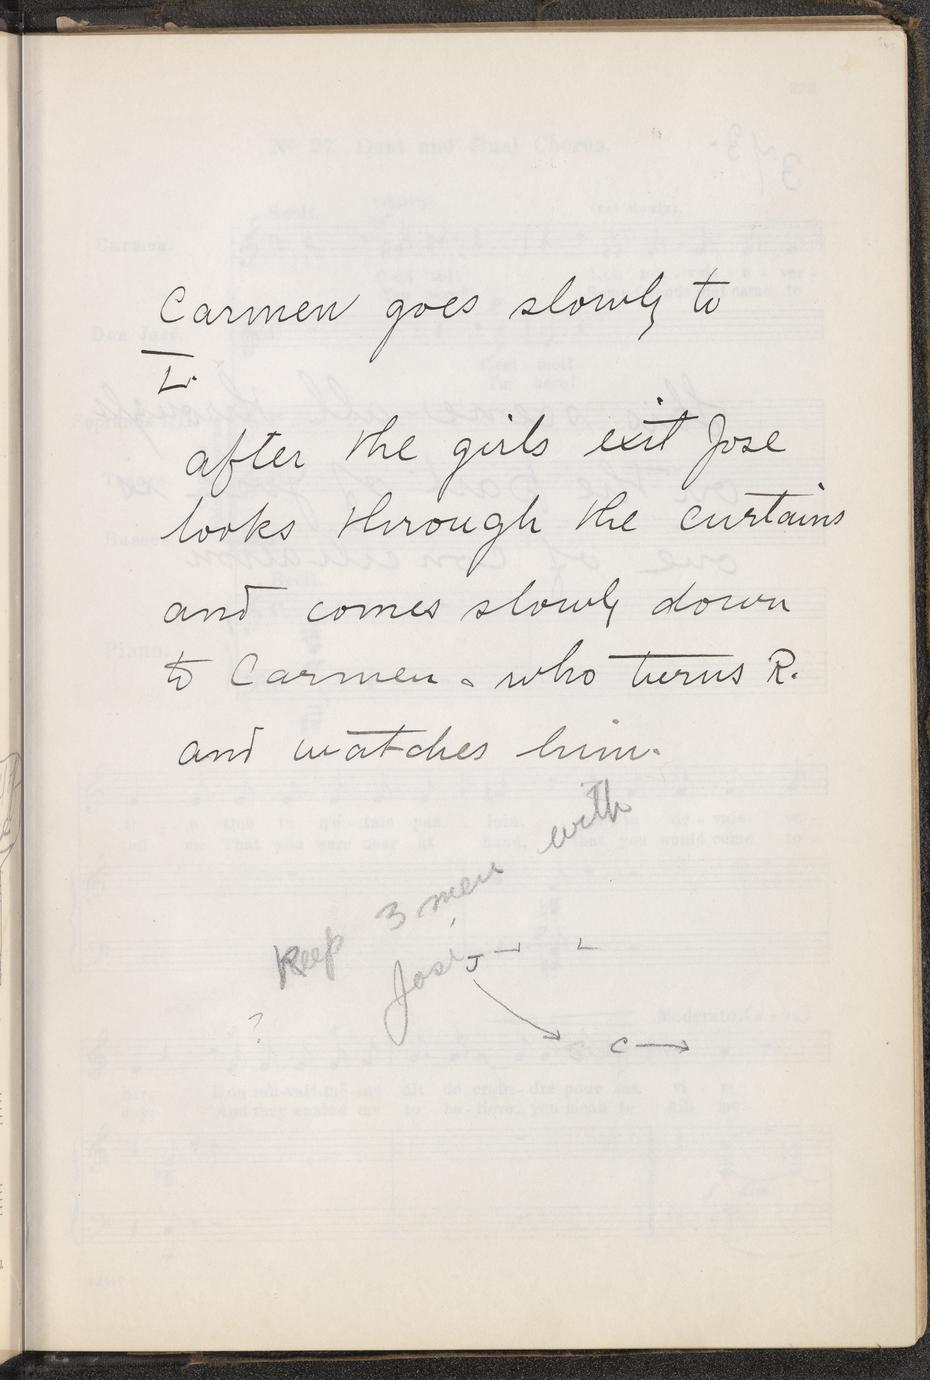 Carmen goes slowly to
L.
after the girls exit Jose
looks through the curtains
and comes slowly down
to Carmen - who turns R.
and watches him.
Keep 3 men with
José
J
?
C